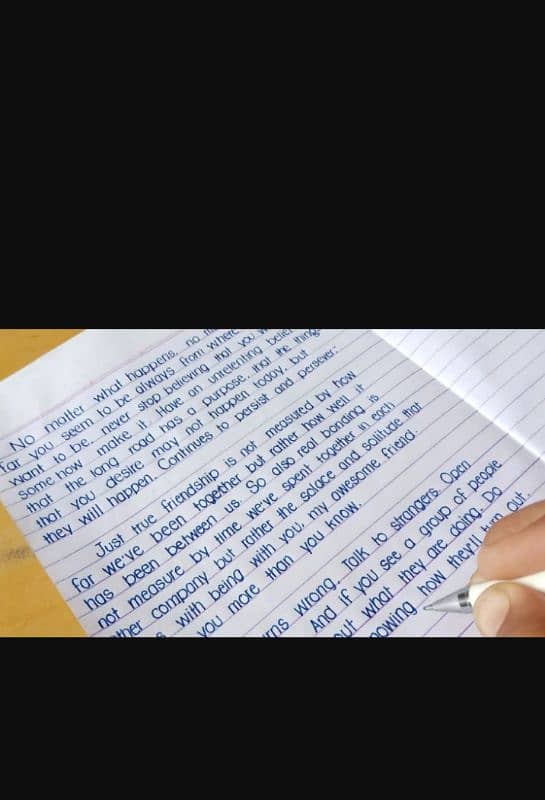 No matter what happens, no
far you seem to be always from where
want to be... never stop believing that you
some how make it. Have an unrelenting belief
that the long road has a purpose. that the things
that you desire may not happen today, but
they will happen. Continues to persist and persever.
Just true friendship is not measured by how
far we've been together but rather how well it
has been between us. So also real bonding is
not measure by time we've spent together in each
ther company but rather the solace and solitude that
with being with you, my awesome friend.
you more than you know.
rns wrong. Talk to strangers. Open
And if you see a group of people
out what they are doing. Do
owing how they'll turn out.